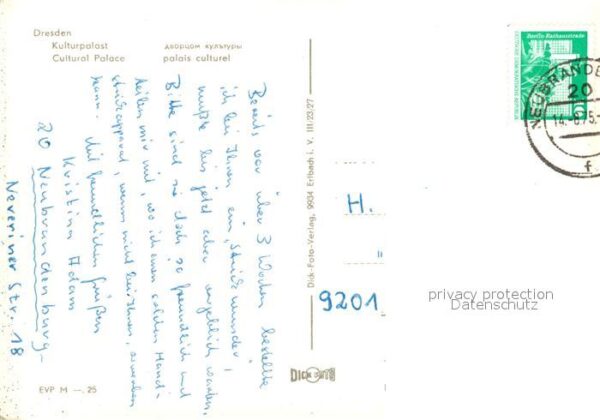 Dresden
Kulturpalast
Cultural Palace
дворцом культуры
palais culturel
Bereits vor über 3 Wochen bestellte
ich bei Ihnen ein „Strickwunder",
mußte bis jetzt aber vergeblich warten.
Bitte sind sie doch so freundlich und
teilen mir mit, wo ich einen solchen Hand-
strickapparat, wenn nicht bei Ihnen, erwerben
kann. Mit freundlichen Grüßen
Kristina Adam
20 Neubrandenburg
Neveriner Str. 18
EVP M —. 25
Dick-Foto-Verlag, 9634 Erlbach i. V. III/23/27
DICK FOTO
Berlin, Rathausstraße
10
NEUBRANDEN
20
14.-8.75.-
f
H.
9201
privacy protection
Datenschutz